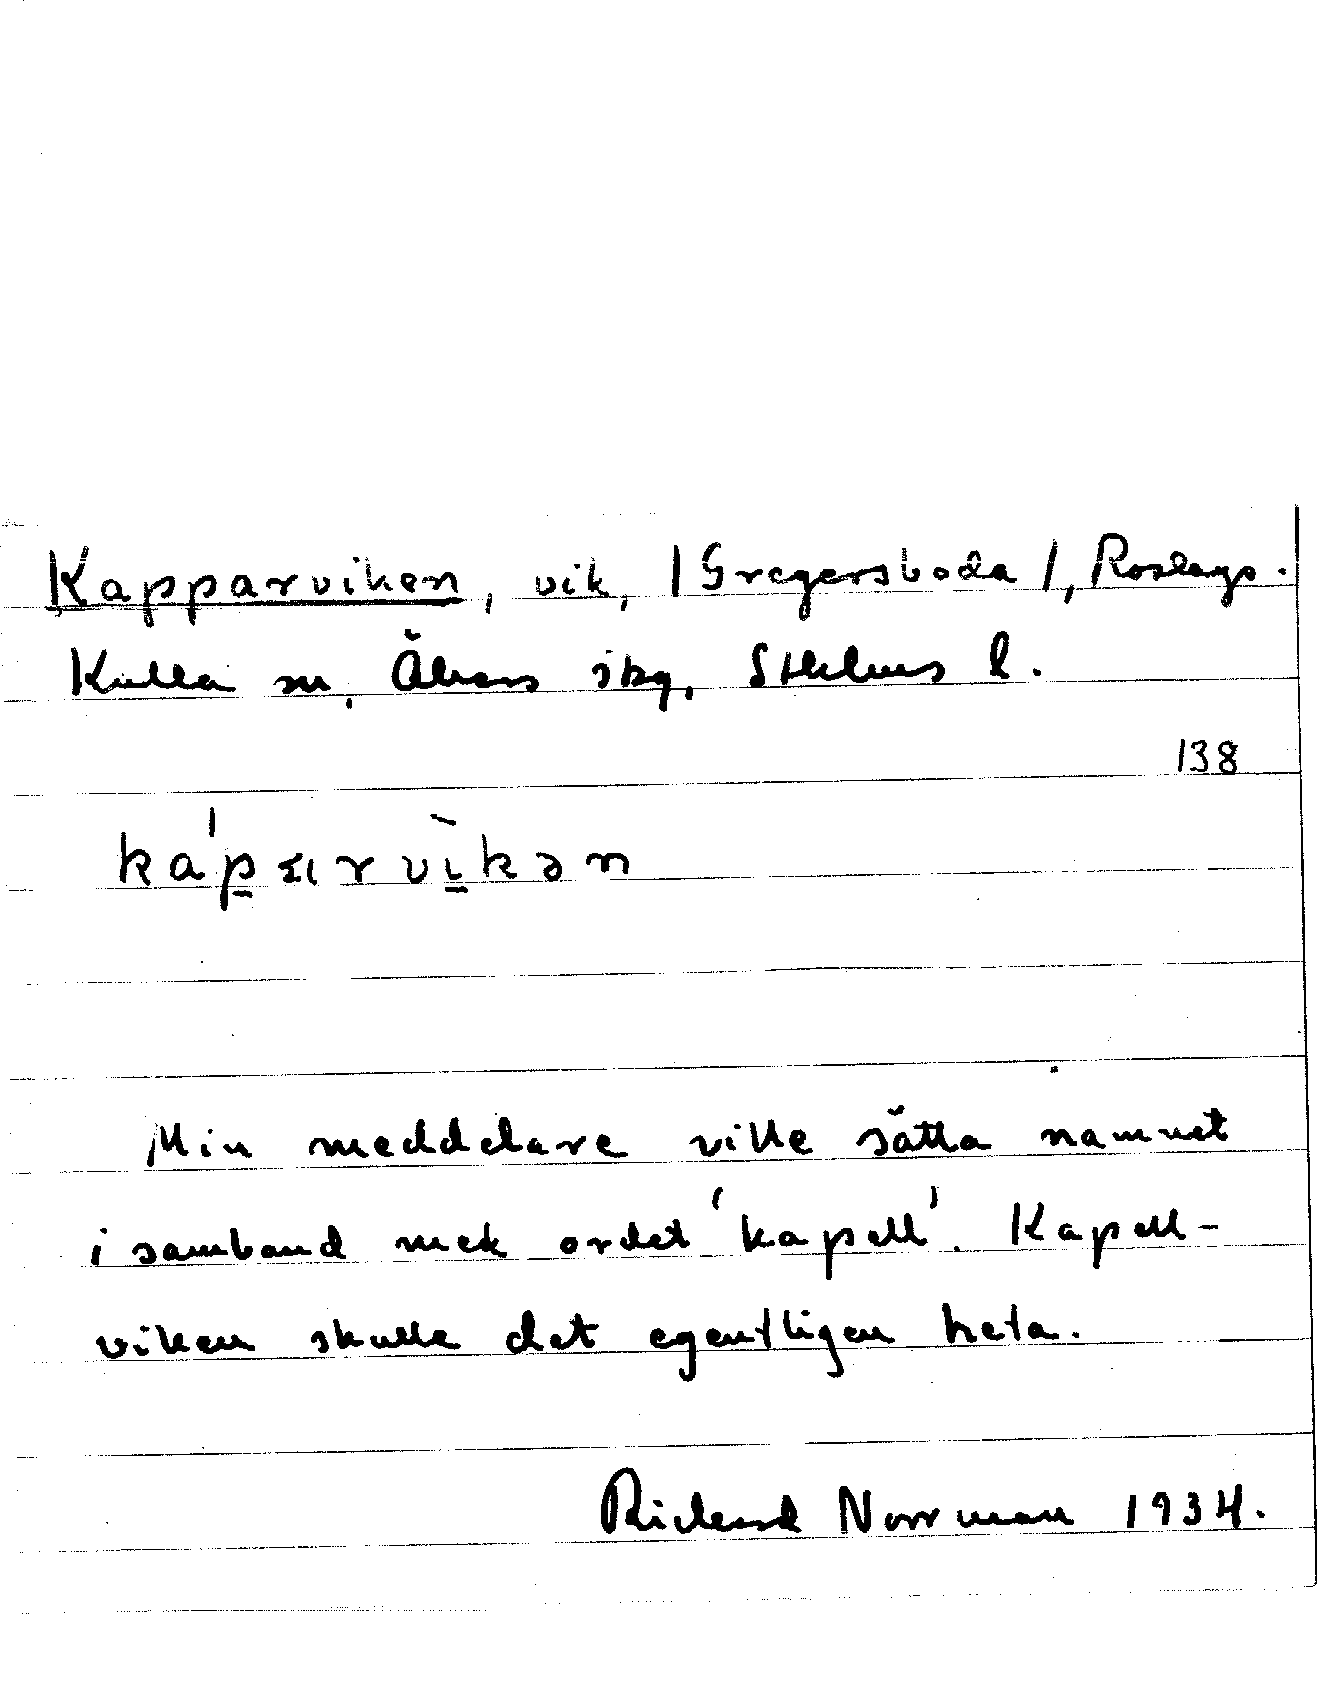 Kapparviken, vik, /Gregersboda/, Roslags-
Kulla sn, Åkers skg, Sthlms l.
138
ka'parvìkən
Min meddelare ville sätta namnet
i samband med ordet 'kapell'. Kapell-
viken skulle det egentligen heta.
Rickard Norrman 1934.